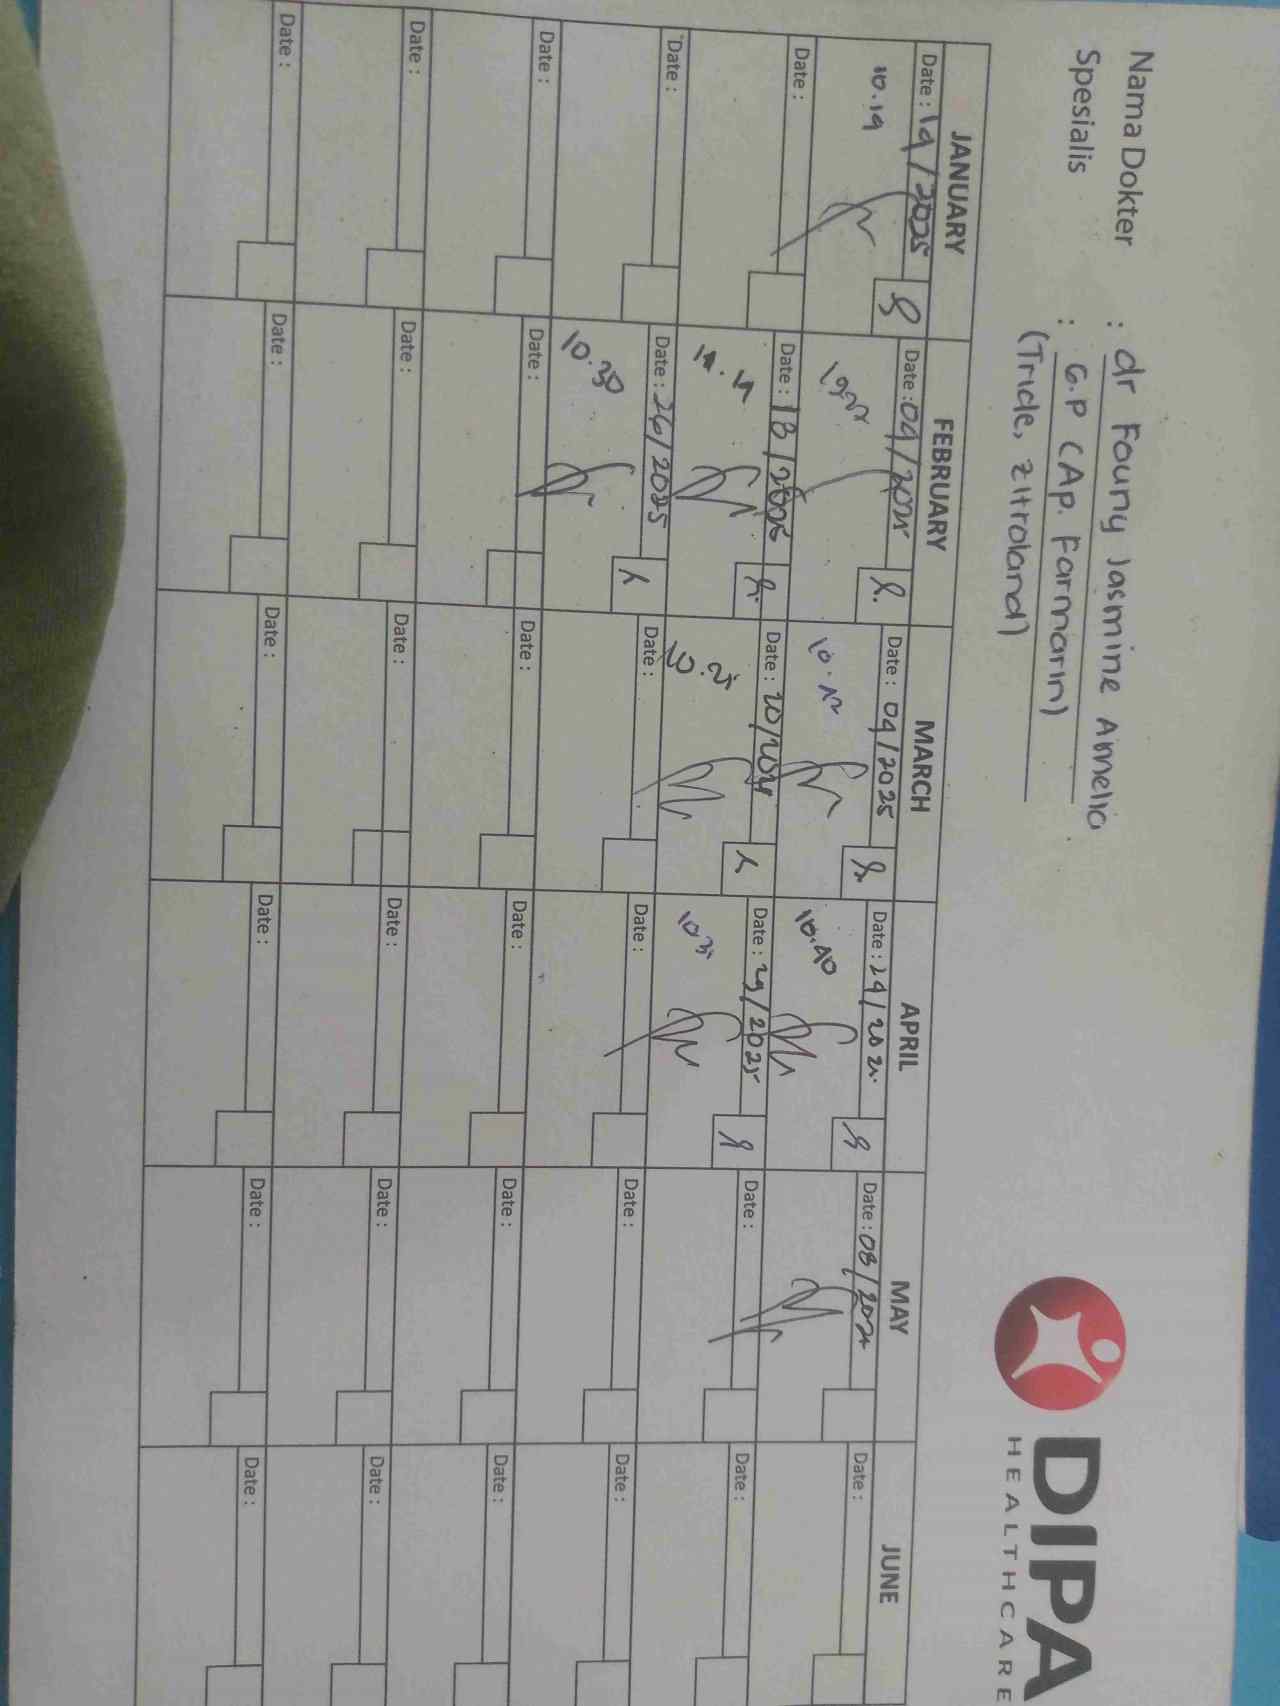 Nama Dokter : dr Founy Jasmine Amelia
Spesialis : G.P (Ap. Farmarin)
(Tride, Zitroland)
DIPA
HEALTHCARE
JANUARY FEBRUARY MARCH APRIL MAY JUNE
Date : 19/2025 Date : 04/2025 Date : 04/2025 Date : 24/202 Date : 08/202 Date :
10.19 10.40
Date : Date : 13/2025 Date : 20/202 Date : 29/2025 Date : Date :
Date : Date : 26/2025 Date : Date : Date : Date :
10.30
Date : Date : Date : Date : Date : Date :
Date : Date : Date : Date : Date : Date :
Date : Date : Date : Date : Date : Date :